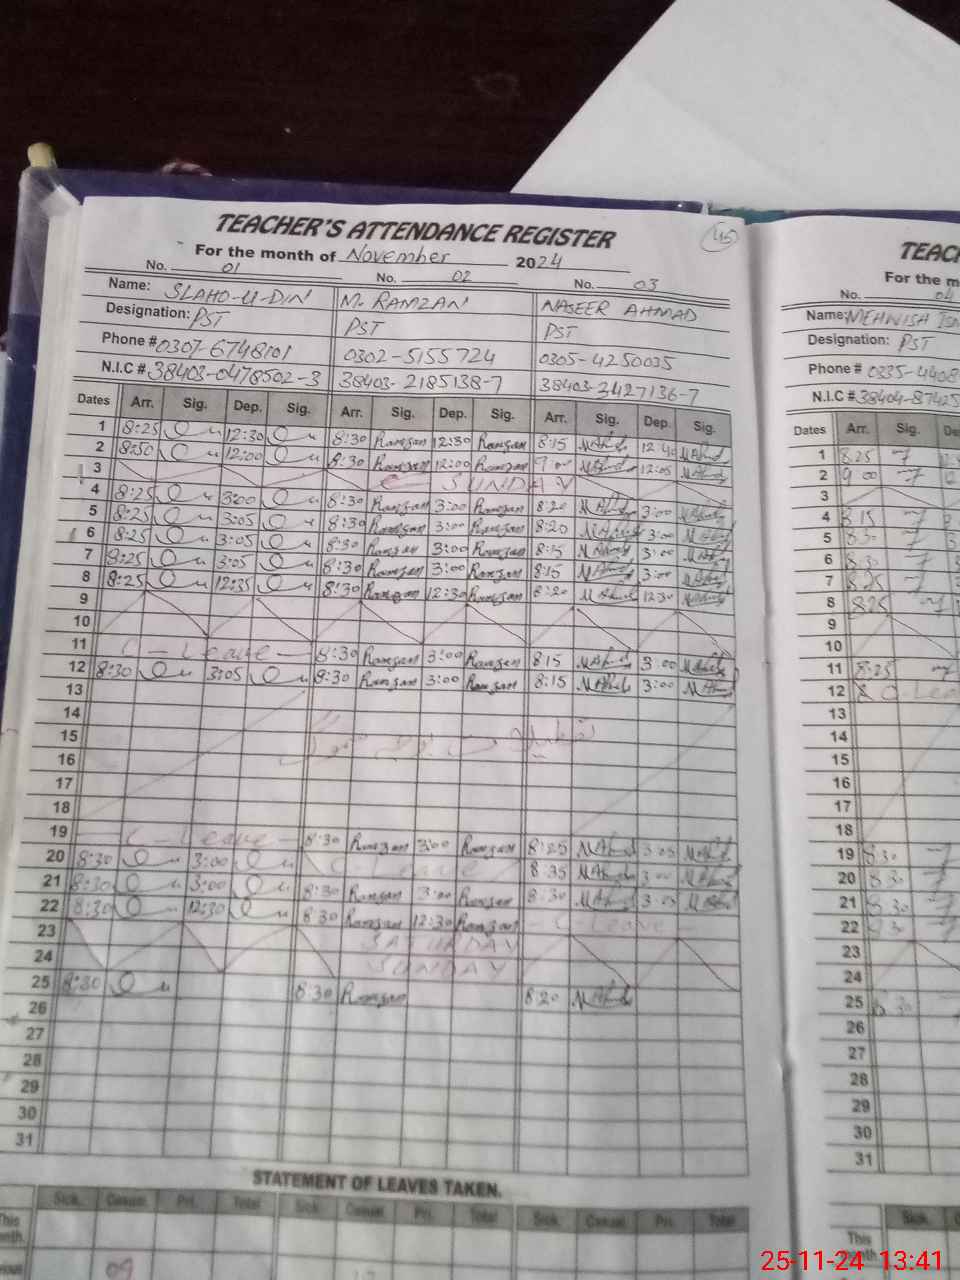 45
TEACHER'S ATTENDANCE REGISTER
For the month of November 2024
No. 01 No. 02 No. 03
Name: SLAHO-U-DIN M. RAMZAN NASEER AHMAD
Designation: PST PST PST
Phone # 0307-6748101 0302-5155724 0305-4250035
N.I.C # 38403-0478502-3 38403-2185138-7 38403-3427136-7
Dates Arr. Sig. Dep. Sig. Arr. Sig. Dep. Sig. Arr. Sig. Dep. Sig.
1 8:25 12:30 8:30 Ramzan 12:30 Ramzan 8:15 NAhmd 12:40 NAhmd
2 8:50 12:00 8:30 Ramzan 12:00 Ramzan 9:00 NAhmd 12:05 NAhmd
3 SUNDAY
4 8:25 3:00 8:30 Ramzan 3:00 Ramzan 8:20 NAhmd 3:00 NAhmd
5 8:25 3:05 8:30 Ramzan 3:00 Ramzan 8:20 NAhmd 3:00 NAhmd
6 8:25 3:05 8:30 Ramzan 3:00 Ramzan 8:15 NAhmd 3:00 NAhmd
7 8:25 3:05 8:30 Ramzan 3:00 Ramzan 8:15 NAhmd 3:00 NAhmd
8 8:25 12:35 8:30 Ramzan 12:30 Ramzan 8:20 NAhmd 12:30 NAhmd
9
10
11 C-Leave 8:30 Ramzan 3:00 Ramzan 8:15 NAhmd 3:00 NAhmd
12 8:30 3:05 8:30 Ramzan 3:00 Ramzan 8:15 NAhmd 3:00 NAhmd
13
14
15
16
17
18
19 C-Leave 8:30 Ramzan 3:00 Ramzan 8:25 NAhmd 3:05 NAhmd
20 8:30 3:00 C-Leave 8:35 NAhmd 3:00 NAhmd
21 8:30 3:00 8:30 Ramzan 3:00 Ramzan 8:30 NAhmd 3:05 NAhmd
22 8:30 12:30 8:30 Ramzan 12:30 Ramzan C-Leave
23 SATURDAY
24 SUNDAY
25 8:30 8:30 Ramzan 8:20 NAhmd
26
27
28
29
30
31
STATEMENT OF LEAVES TAKEN.
Sick. Casual. Pri. Total Sick. Casual. Pri. Total Sick. Casual Pri. Total
This
09
TEACH
For the m
No. 04
Name: MEHWISH
Designation: PST
Phone # 0335-4408
N.I.C # 38404-87425
Dates Arr. Sig. De
1 8:25
2 9:00
3
4 8:15
5 8:30
6 8:30
7 8:25
8 8:25
9
10
11 8:25
12 C-Leav
13
14
15
16
17
18
19 8:30
20 8:30
21 8:30
22
23
24
25 8:30
26
27
28
29
30
31
Sick.
This
month
25-11-24 13:41